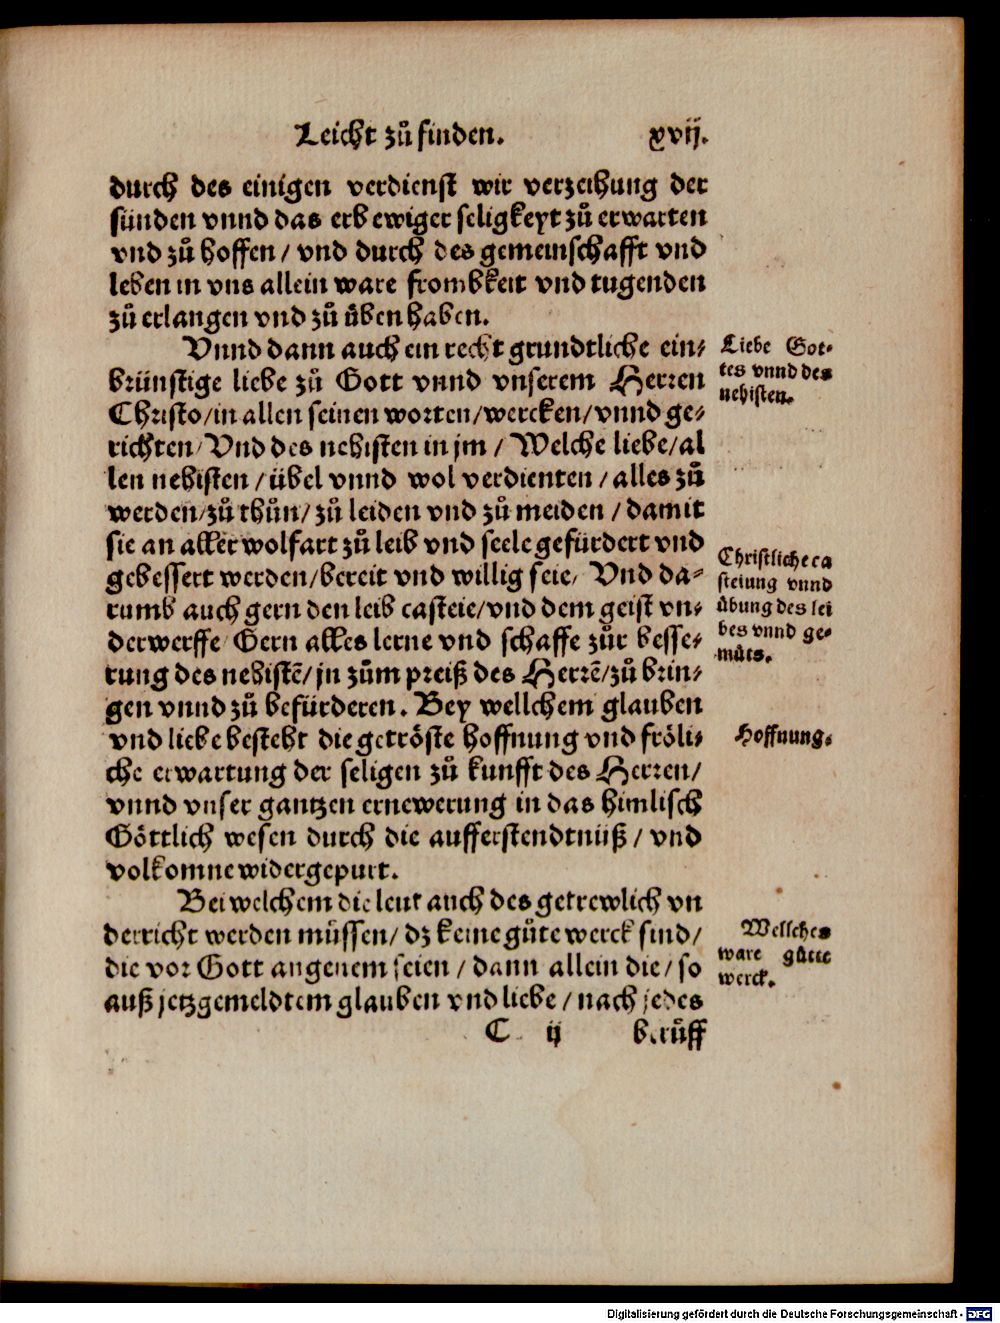 Leicht zů finden. xvij.
durch des einigen verdienst wir verzeihung der
sünden vnnd das erb ewiger seligkeyt zů erwarten
vnd zů hoffen / vnd durch des gemeinschafft vnd
leben in vns allein ware frombkeit vnd tugenden
zů erlangen vnd zů üben haben.
Vnnd dann auch ein recht grundtliche ein⸗
brünstige liebe zů Gott vnnd vnserem Herren
Christo/in allen seinen worten/wercken/vnnd ge⸗
richten/ Vnd des nehisten in jm / Welche liebe/al
len nehisten / übel vnnd wol verdienten / alles zů
werden/zů thůn/ zů leiden vnd zů meiden / damit
sie an aller wolfart zů leib vnd seele gefürdert vnd
gebessert werden/bereit vnd willig seie/ Vnd da⸗
rumb auch gern den leib casteie/vnd dem geist vn⸗
derwerffe/ Gern alles lerne vnd schaffe zůr besse⸗
rung des nehistē/jn zům preiß des Herrē/zů brin⸗
gen vnnd zů befürderen. Bey wellchem glauben
vnd liebe besteht die getröste hoffnung vnd fröli⸗
che erwartung der seligen zů kunfft des Herren/
vnnd vnser gantzen ernewerung in das himlisch
Göttlich wesen durch die aufferstendtnüß / vnd
volkomne widergepurt.
Bei welchem die leut auch des getrewlich vn
derricht werden müssen/ dz keine gůte werck sind/
die vor Gott angenem seien / dann allein die / so
auß jetzgemeldtem glauben vnd liebe / nach jedes
C ij berůff
Liebe Got⸗
tes vnnd des
nehisten.
Christliche ca
steiung vnnd
übung des lei
bes vnnd ge⸗
můts.
Hoffnung.
Wellches
ware gůtte
werck.
Digitalisierung gefördert durch die Deutsche Forschungsgemeinschaft - DFG